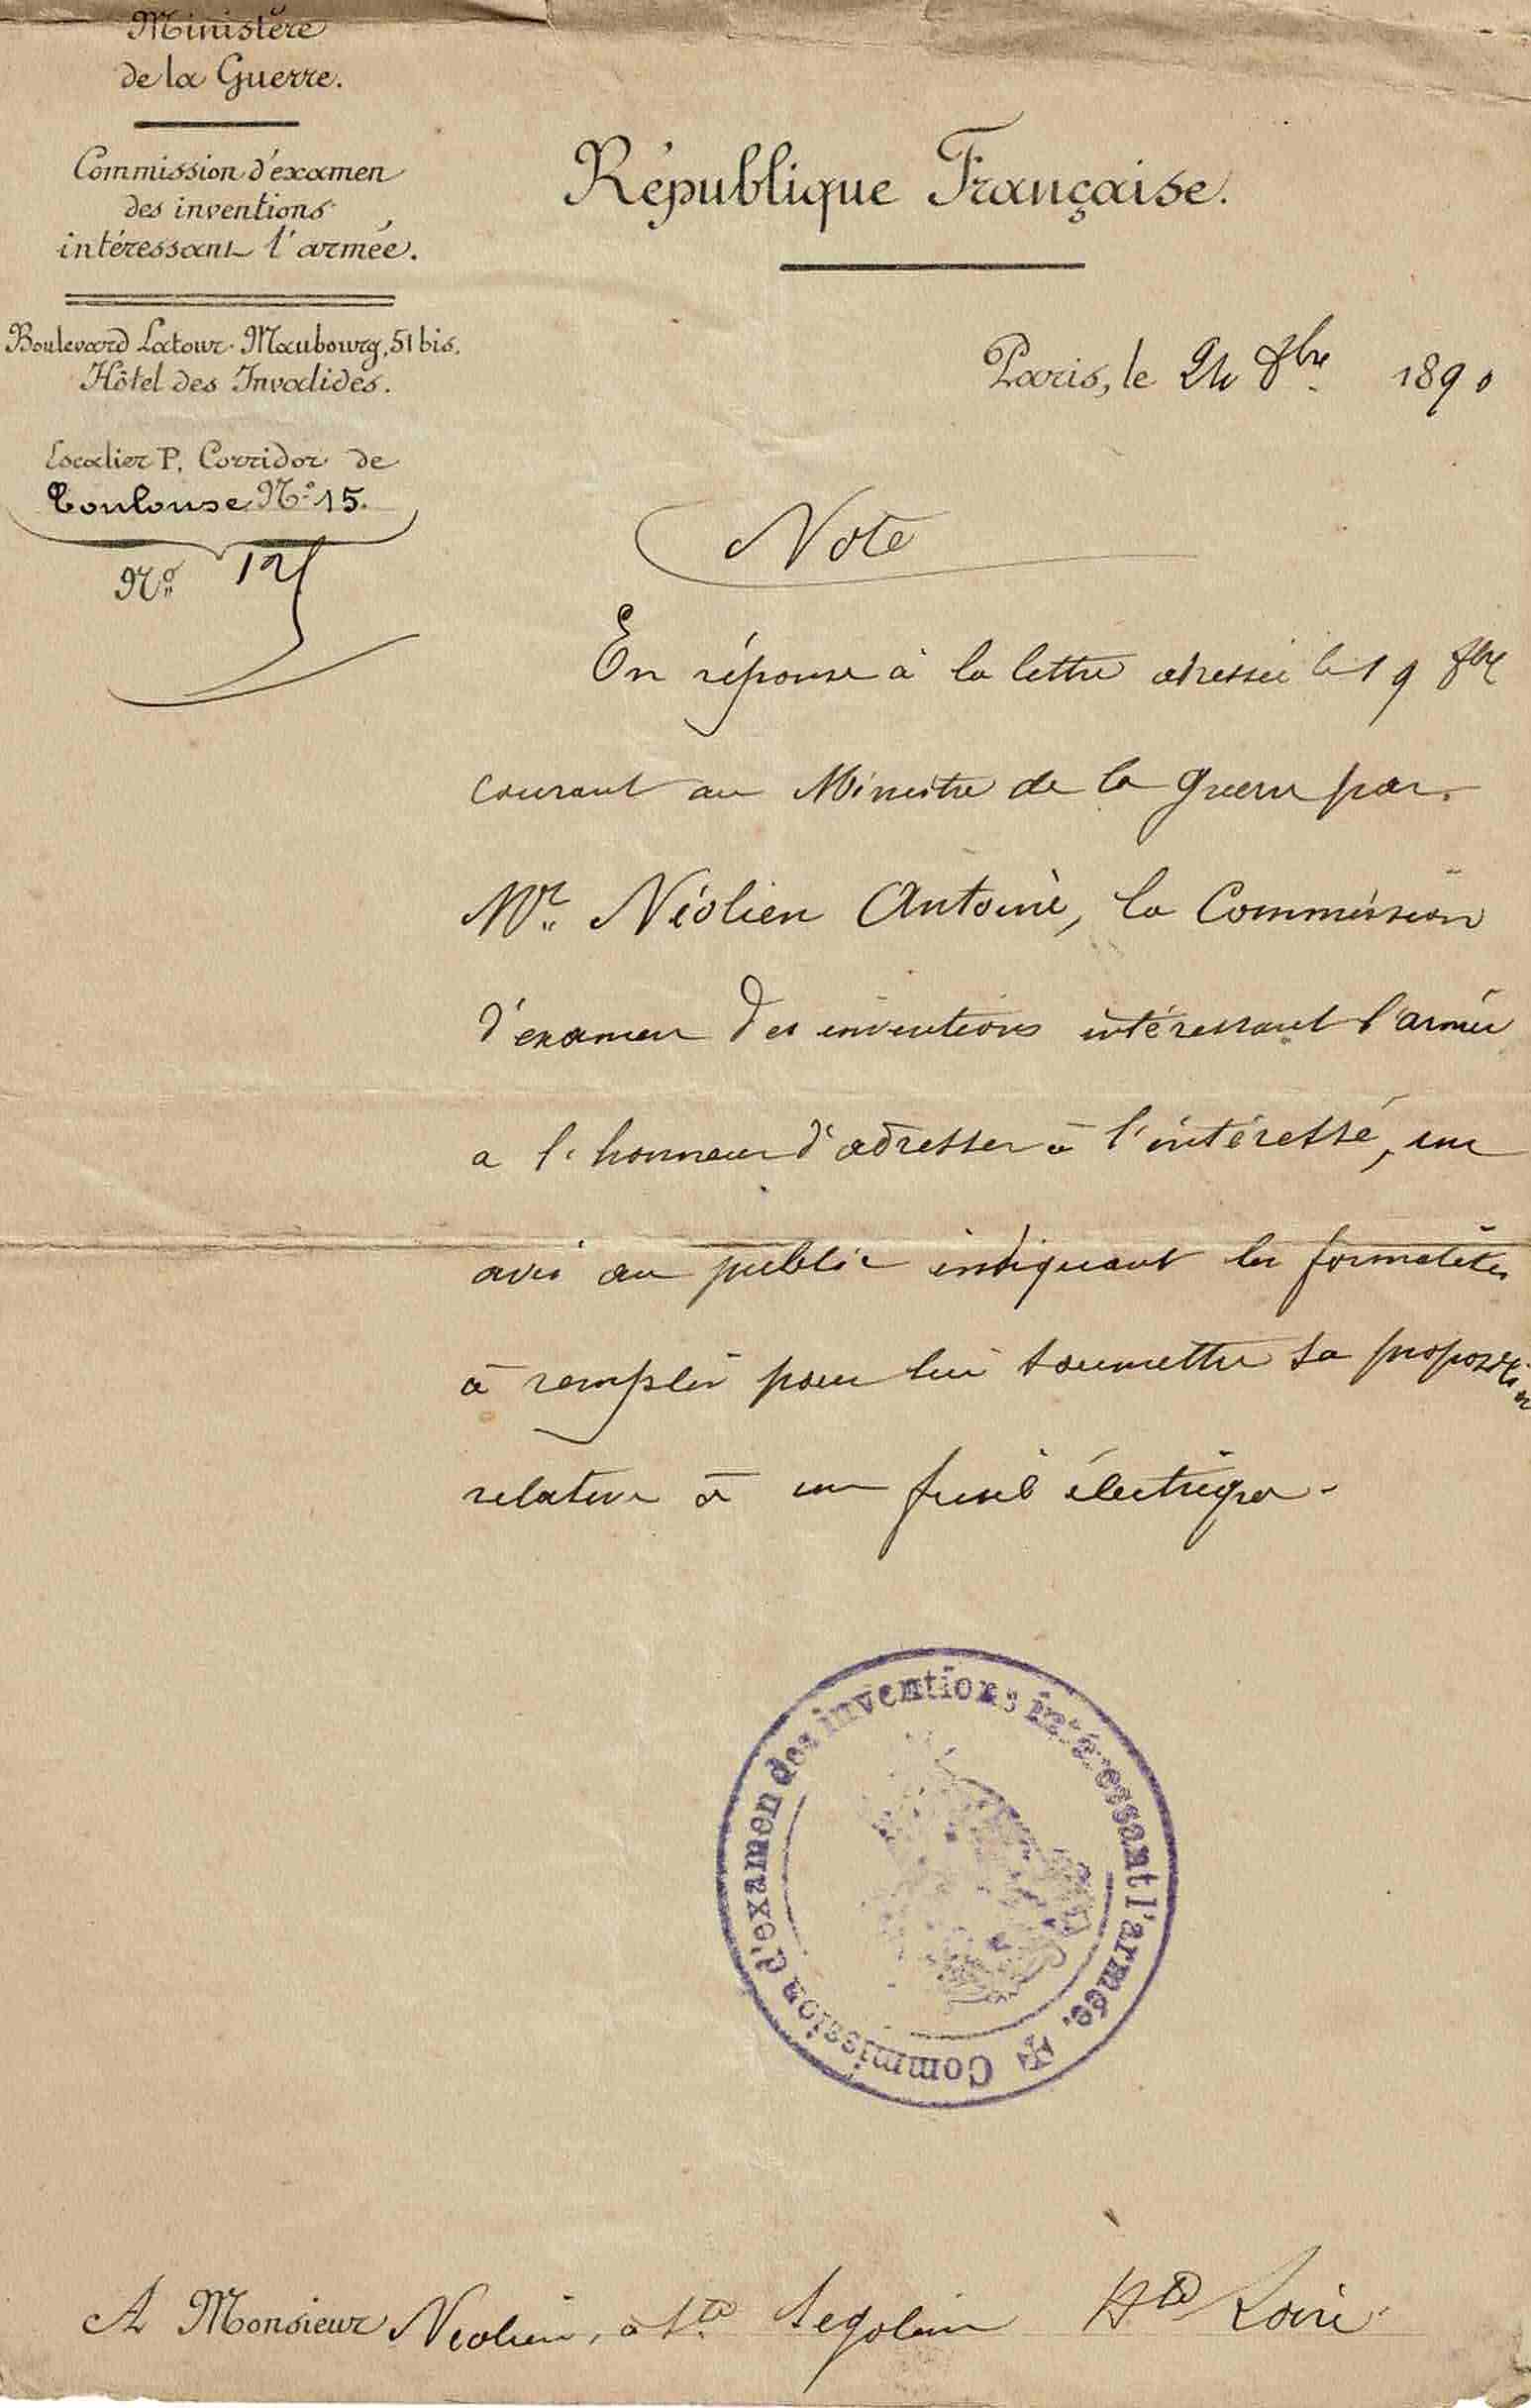 Ministère
de la Guerre.
Commission d'examen
des inventions
intéressant l'armée.
Boulevard Latour-Maubourg, 51 bis.
Hôtel des Invalides.
Escalier P, Corridor de
Toulouse N.º 15.
N.º
République Française.
Paris, le 24 8bre 1890
Note
En réponse à la lettre adressée le 19 8bre
courant au Ministre de la Guerre par
Mr. Néolien Antoine, la Commission
d'examen des inventions intéressant l'armée
a l'honneur d'adresser à l'intéressé, un
avis au public indiquant les formalités
à remplir pour lui soumettre sa proposition
relative à un fusil électrique.
Commission d'examen des inventions intéressant l'armée.
A Monsieur Néolien, à Ste Segolène Hte Loire